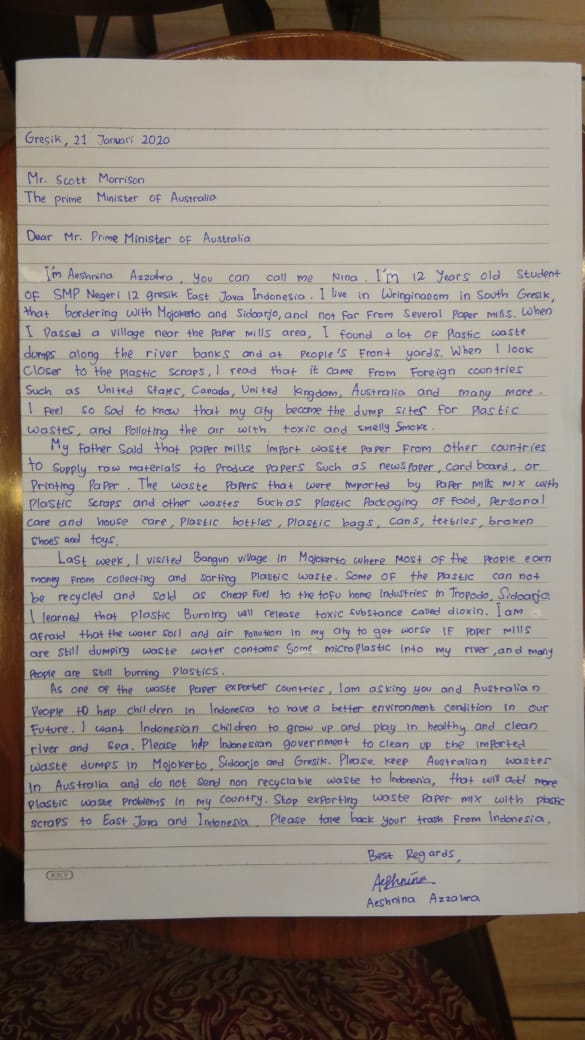 Gresik, 21 Januari 2020
Mr. Scott Morrison
The prime Minister of Australia
Dear Mr. Prime Minister of Australia
I'm Aeshnina Azzahra, you can call me Nina. I'm 12 years old student
of SMP Negeri 12 gresik East Java Indonesia. I live in Wringinanom in South Gresik,
that bordering with Mojokerto and Sidoarjo, and not far from several paper mills. When
I passed a village near the paper mills area, I found alot of plastic waste
dumps along the river banks and at people's front yards. When I look
closer to the plastic scraps, I read that it came from foreign countries
such as United States, Canada, United Kingdom, Australia and many more.
I feel so sad to know that my city become the dump sites for plastic
wastes, and Polloting the air with toxic and smelly smoke.
My father said that paper mills import waste paper from other countries
to supply raw materials to produce papers such as newspaper, card board, or
printing paper. The waste papers that were imported by paper mills mix with
plastic scraps and other wastes such as plastic packaging of food, personal
care and house care, plastic bottles, plastic bags, cans, tertiles, broken
shoes and toys.
Last week, I visited Bangun village in Mojokerto where most of the people earn
money from collecting and sorting plastic waste. Some of the plastic can not
be recycled and sold as cheap fuel to the tofu home industries in Tropodo, Sidoarjo.
I learned that plastic Burning will release toxic substance called dioxin. I am
afraid that the water soil and air pollution in my city to get worse if paper mills
are still dumping waste water contains some microplastic into my river, and many
people are still burning plastics.
As one of the waste paper exporter countries, Iam asking you and Australian
people to help children in Indonesia to have a better environment condition in our
future. I want Indonesian children to grow up and play in healthy and clean
river and sea. Please help Indonesian government to clean up the imported
waste dumps in Mojokerto, Sidoarjo and Gresik. Please keep Australian wastes
in Australia and do not send non recyclable waste to Indonesia, that will add more
plastic waste problems in my country. Stop exporting waste paper mix with plastic
scraps to East Java and Indonesia. Please take back your trash from Indonesia.
Best Regards,
Aeshnina
Aeshnina Azzahra
KKY